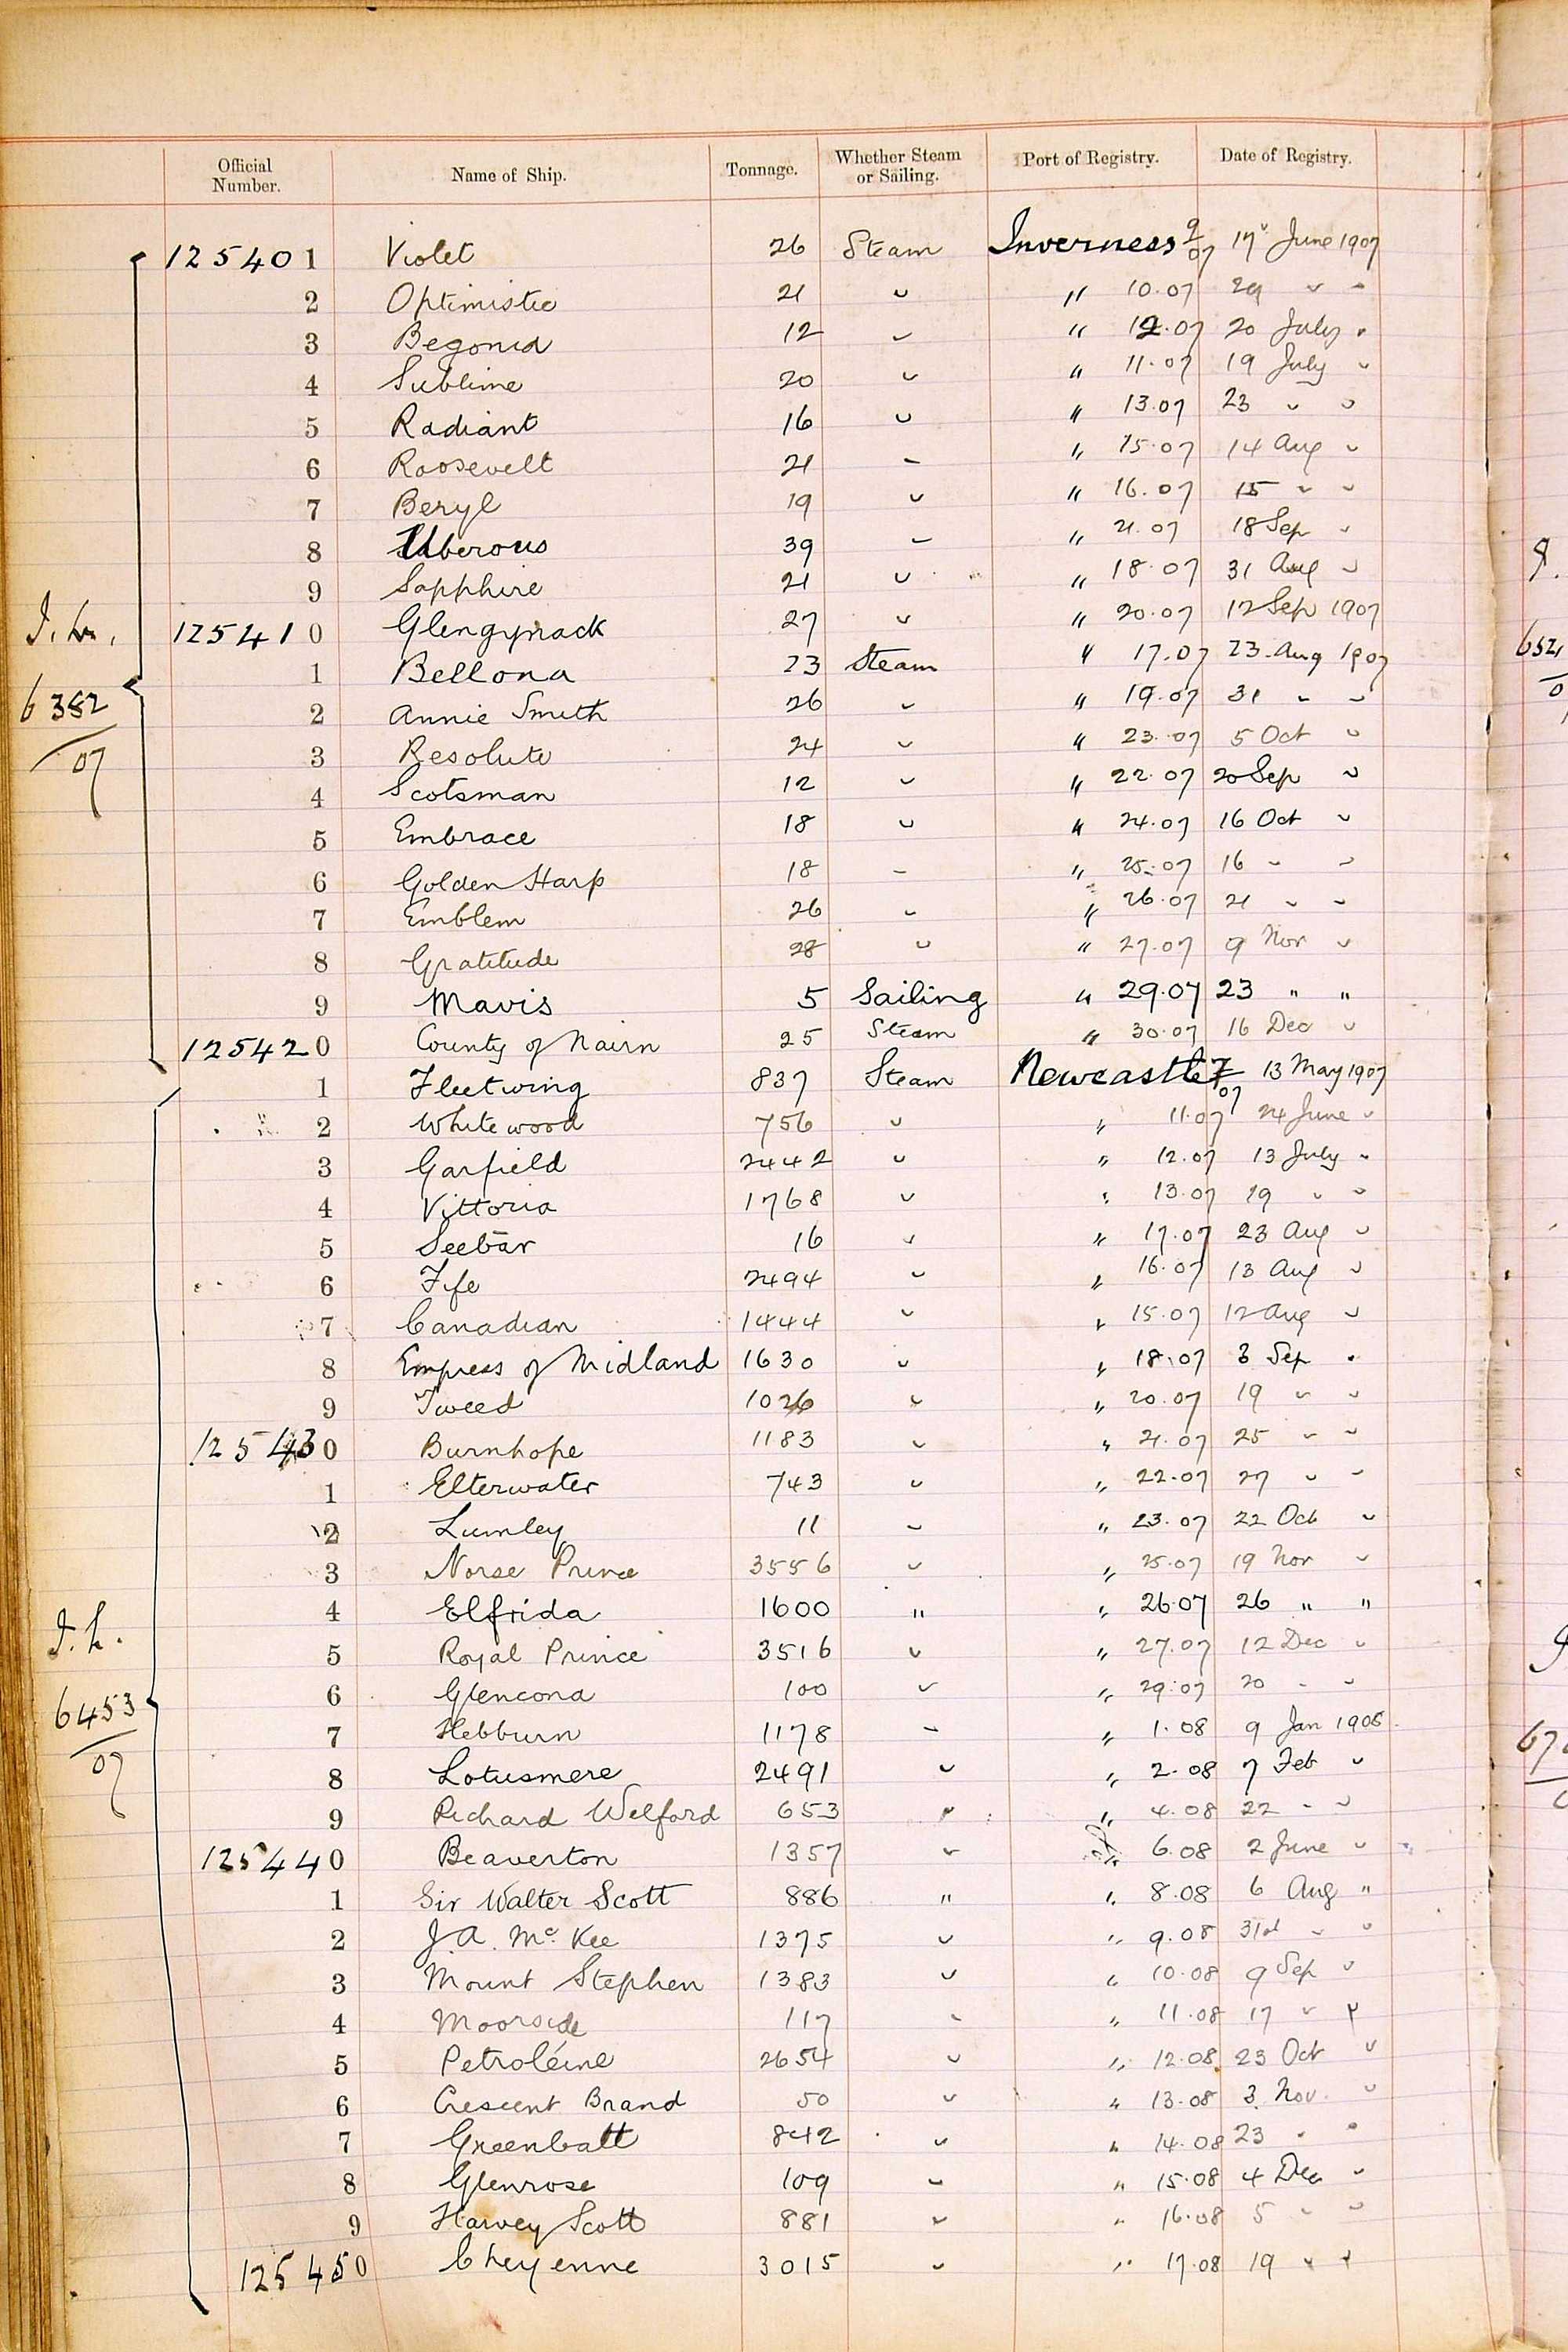 Official Number. Name of Ship. Tonnage. Whether Steam or Sailing. Port of Registry. Date of Registry.
125401 Violet 26 Steam Inverness 9/07 17 June 1907
2 Optimistic 21 " " 10.07 29 " "
3 Begonia 12 " " 12.07 20 July "
4 Sublime 20 " " 11.07 19 July "
5 Radiant 16 " " 13.07 23 " "
6 Roosevelt 21 " " 15.07 14 Aug "
7 Beryl 19 " " 16.07 15 " "
8 Uberous 39 " " 21.07 18 Sep "
9 Sapphire 21 " " 18.07 31 Aug "
125410 Glengynack 27 " " 20.07 12 Sep 1907
1 Bellona 23 Steam " 17.07 23 Aug 1907
2 Annie Smith 26 " " 19.07 31 " "
3 Resolute 24 " " 23.07 5 Oct "
4 Scotsman 12 " " 22.07 20 Sep "
5 Embrace 18 " " 24.07 16 Oct "
6 Golden Harp 18 " " 25.07 16 " "
7 Emblem 26 " " 26.07 21 " "
8 Gratitude 28 " " 27.07 9 Nov "
9 Mavis 5 Sailing " 29.07 23 " "
125420 County of Nairn 25 Steam " 30.07 16 Dec "
6382/07
1 Fleetwing 837 Steam Newcastle 7/07 13 May 1907
2 Whitewood 756 " " 11.07 24 June "
3 Garfield 2442 " " 12.07 13 July "
4 Vittoria 1768 " " 13.07 19 " "
5 Seebär 16 " " 17.07 23 Aug "
6 Fife 2494 " " 16.07 13 Aug "
7 Canadian 1444 " " 15.07 12 Aug "
8 Empress of Midland 1630 " " 18.07 3 Sep "
9 Tweed 1026 " " 20.07 19 " "
125430 Burnhope 1183 " " 21.07 25 " "
1 Elterwater 743 " " 22.07 27 " "
2 Lumley 11 " " 23.07 22 Oct "
3 Norse Prince 3556 " " 25.07 19 Nov "
4 Elfrida 1600 " " 26.07 26 " "
5 Royal Prince 3516 " " 27.07 12 Dec "
6 Glencona 100 " " 29.07 20 " "
7 Hebburn 1178 " " 1.08 9 Jan 1908
8 Lotusmere 2491 " " 2.08 7 Feb "
9 Richard Welford 653 " " 4.08 22 " "
125440 Beaverton 1357 " " 6.08 2 June "
1 Sir Walter Scott 886 " " 8.08 6 Aug "
2 J.A. McKee 1375 " " 9.08 31st " "
3 Mount Stephen 1383 " " 10.08 9 Sep "
4 Moorside 117 " " 11.08 17 " "
5 Petroléine 2654 " " 12.08 23 Oct "
6 Crescent Brand 50 " " 13.08 3 Nov. "
7 Greenbatt 842 " " 14.08 23 " "
8 Glenrose 109 " " 15.08 4 Dec "
9 Harvey Scott 881 " " 16.08 5 " "
125450 Cheyenne 3015 " " 17.08 19 " "
6453/07